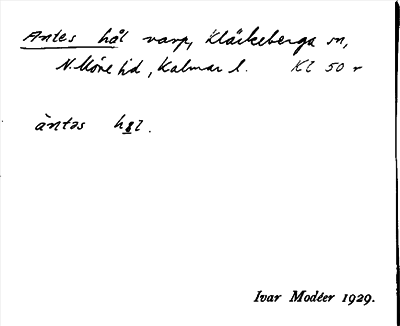 Antes hål varp, Kläckeberga sn,
N. Möre hd, Kalmar l. Kl 50 r
àntəs hġl.
Ivar Modéer 1929.